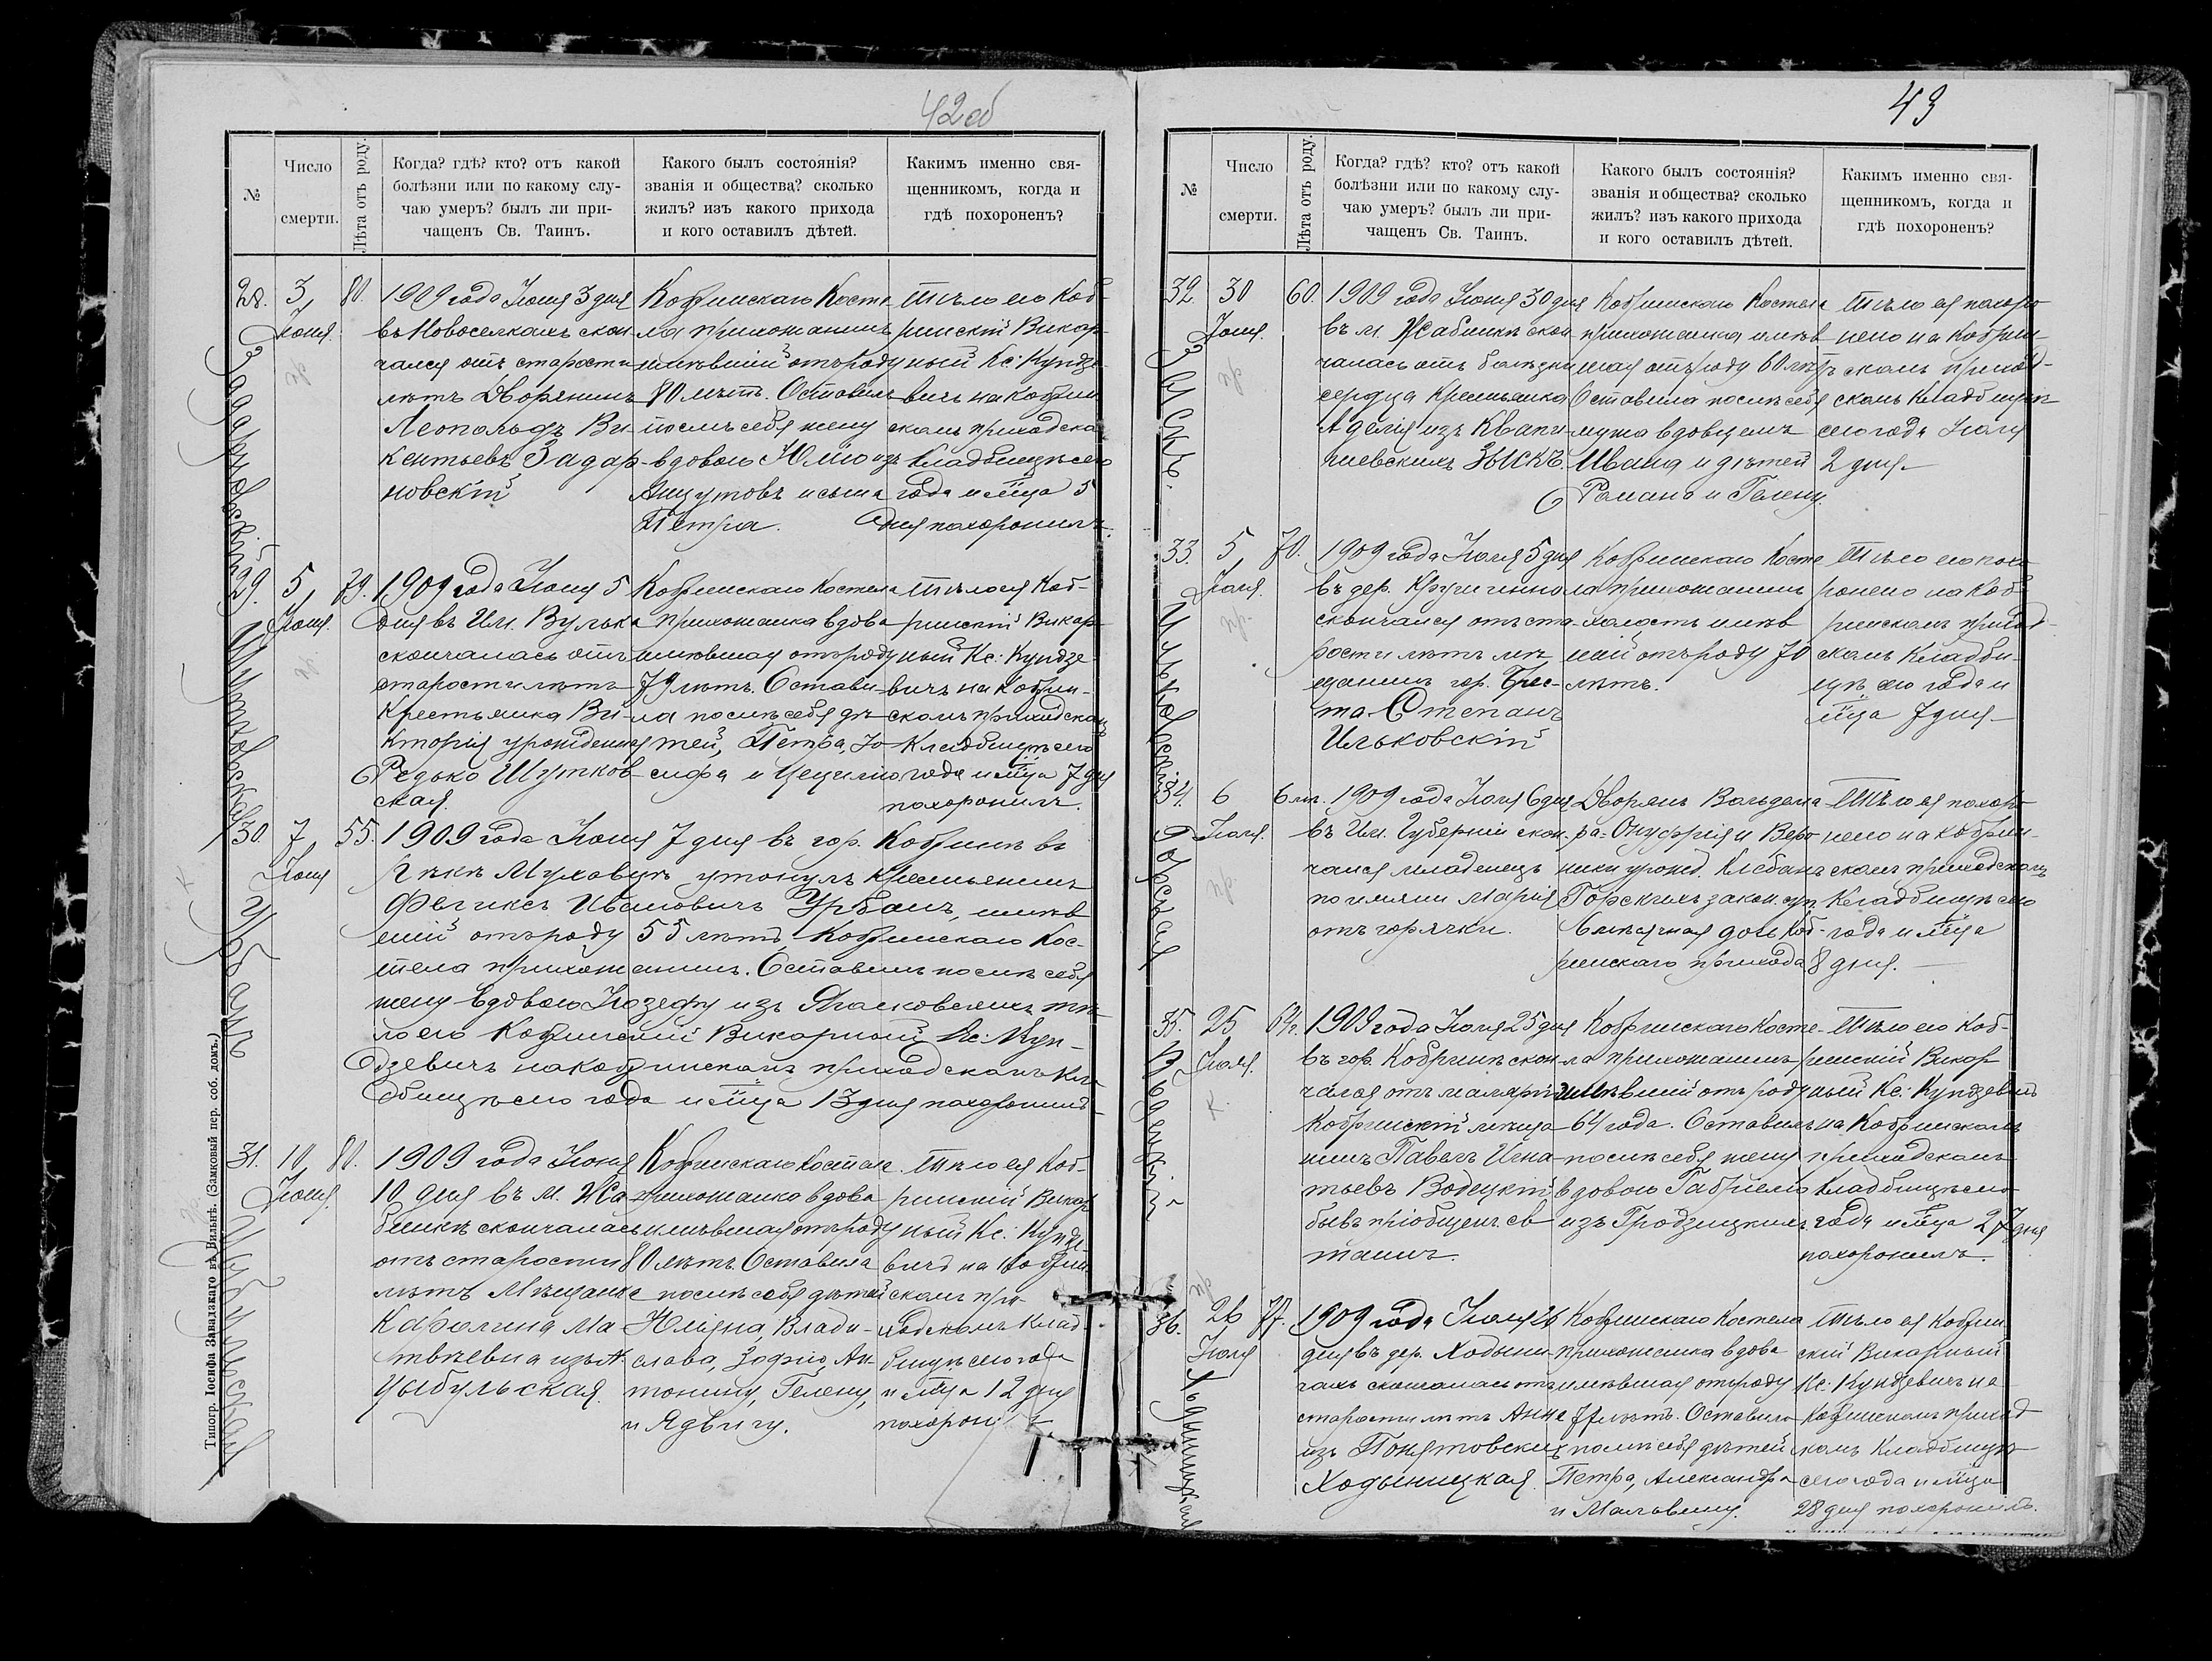 42об
№
Число
смерти.
Лѣта отъ роду.
Когда? гдѣ? кто? отъ какой
болѣзни или по какому слу-
чаю умеръ? былъ ли при-
чащенъ Св. Таинъ.
Какого былъ состоянія?
званія и общества? сколько
жилъ? изъ какого прихода
и кого оставилъ дѣтей.
Какимъ именно свя-
щенникомъ, когда и
гдѣ похороненъ?
28.
3
Іюня.
80.
Задарновскій
1909 года Іюня 3 дня
въ Новоселкахъ скон-
чался отъ старости
лѣтъ Дворянинъ
Леопольдъ Ви-
кентьевъ Задар-
новскій
Кобринскаго Косте
ла прихожанинъ
имѣвшій отъ роду
80 лѣтъ. Оставилъ
послѣ себя жену
вдовою Юлію изъ
и сына
Петра.
Тѣло его Коб-
ринскій Викар-
ный Кс: Кундзе-
вичъ на Кобрин
скомъ приходско
Кладбищѣ сего
года и мѣсяца 5
дня похоронилъ.
29.
5
Іюня.
79.
Шутковская
1909 года Іюня 5
дня въ Им. Вулька
скончалась отъ
старости лѣтъ
Крестьянка Ви-
кторія урожденная
Редько Шутков-
ская.
Кобринскаго Костела
прихожанка вдова
имѣвшая отъ роду
79 лѣтъ. Остави-
ла послѣ себя дѣ-
тей, Петра, Іо-
сифа и Цецилію
Тѣло ея Коб-
ринскій Викар
ный Кс: Кундзе-
вичъ на Кобрин-
скомъ приходскомъ
Кладбищѣ сего
года и мѣсяца 7 дня
похоронилъ.
30.
7
Іюня
55.
Урбанъ
1909 года Іюня 7 дня въ гор. Кобринѣ въ
рѣкѣ Муховцѣ утонулъ крестьянинъ
Феликсъ Ивановичъ Урбанъ, имѣв
шій отъ роду 55 лѣтъ, Кобринскаго Кос-
тела прихожанинъ. Оставилъ послѣ себя
жену вдовою Іозефу изъ тѣ-
ло его Кобринскій Викарный Кс: Кун-
дзевичъ на Кобринскомъ приходскомъ Кла
дбищѣ сего года и мѣсяца 13 дня похоронилъ
31.
10
Іюня.
80.
Цыбульская
1909 года Іюня
10 дня въ м. Жа-
бинкѣ скончалась
отъ старости
лѣтъ Мѣщанка
Каролина Ма
твѣевна изъ
Цыбульская.
Кобринскаго Костела
прихожанка вдова
имѣвшая отъ роду
80 лѣтъ. Оставила
послѣ себя дѣтей
Юліана, Влади-
слава, Зофію, Ан-
тонину, Гелену,
и Ядвигу.
Тѣло ея Коб-
ринскій Викар
ный Кс: Кундзе-
вичъ на Кобрин
скомъ при-
ходскомъ Клад-
бищѣ сего года
и мѣсяца 12 дня
похорон
Типогр. Іосифа Завадзкаго въ Вильнѣ. (Замковый пер. соб. домъ.)
43
№
Число
смерти.
Лѣта отъ роду.
Когда? гдѣ? кто? отъ какой
болѣзни или по какому слу-
чаю умеръ? былъ ли при-
чащенъ Св. Таинъ.
Какого былъ состоянія?
званія и общества? сколько
жилъ? изъ какого прихода
и кого оставилъ дѣтей.
Какимъ именно свя-
щенникомъ, когда и
гдѣ похороненъ?
32
30
Іюня.
60.
Зыскъ.
1909 года Іюня 30 дня
въ м. Жабинкѣ скон-
чалась отъ болѣзни
сердца Крестьянка
Аделія изъ
Зыскъ.
Кобринскаго Костела
прихожанка имѣв
шая отъ роду 60 лѣтъ
Оставила послѣ себя
мужа вдовцемъ
Ивана и дѣтей
Романа и Гелену.
Тѣло ея похоро
нено на Кобрин-
скомъ приход-
скомъ Кладбищѣ
сего года Іюля
2 дня.
33.
5
Іюля.
70.
Ильковскій
1909 года Іюля 5 дня
въ дер.
скончался отъ ста-
рости лѣтъ мѣ-
щанинъ гор. Брес-
та Степанъ
Ильковскій
Кобринскаго Косте
ла прихожанинъ
холостъ имѣв
шій отъ роду 70
лѣтъ.
Тѣло его похо
ронено на Коб
ринскомъ приход-
скомъ Кладби-
щѣ сего года и
мѣсяца 7 дня
34.
6
Іюля.
6 м.
Горская
1909 года Іюля 6 дня
въ Им. Губерніи скон-
чался младенецъ
по имени Марія
отъ горячки.
Дворянъ Вольдема
ра-Онуфрія и Веро
ники урожд.
Горскихъ закон. суп.
6 мѣсячная дочь Коб-
ринскаго прихода
Тѣло ея похоро
нено на Кобрин-
скомъ приходскомъ
Кладбищѣ сего
года и мѣсяца
8 дня.
35.
25
Іюля.
64 г.
Водецкій
1909 года Іюля 25 дня
въ гор. Кобринѣ скон-
чался отъ маляріи
Кобринскій мѣща-
нинъ Павелъ Игна-
тьевъ Водецкій
бывъ пріобщенъ св
таинъ.
Кобринскаго Косте-
ла прихожанинъ
имѣвшій отъ роду
64 года. Оставилъ
послѣ себя жену
вдовою Габріелю
изъ Гродзицкихъ
Тѣло его Коб-
ринскій Викар
ный Кс: Кундзевичъ
на Кобринскомъ
приходскомъ
Кладбищѣ сего
года и мѣсяца 27 дня
похоронилъ.
36.
26
Іюля
77.
Ходыницкая
1909 года Іюля 26
дня въ дер. Ходыни-
чахъ скончалась отъ
старости лѣтъ Анна
изъ Понятовскихъ
Ходыницкая.
Кобринскаго Костела
прихожанка вдова
имѣвшая отъ роду
77 лѣтъ. Оставила
послѣ себя дѣтей
Петра, Александра
и Мальвину.
Тѣло ея Кобрин
скій Викарный
Кс: Кундзевичъ на
Кобринскомъ приход
скомъ Кладбищѣ
сего года и мѣсяца
28 дня похоронилъ.